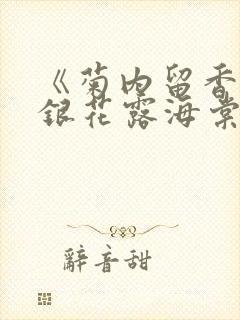 《菊内留香
銀花露海棠
辭音甜